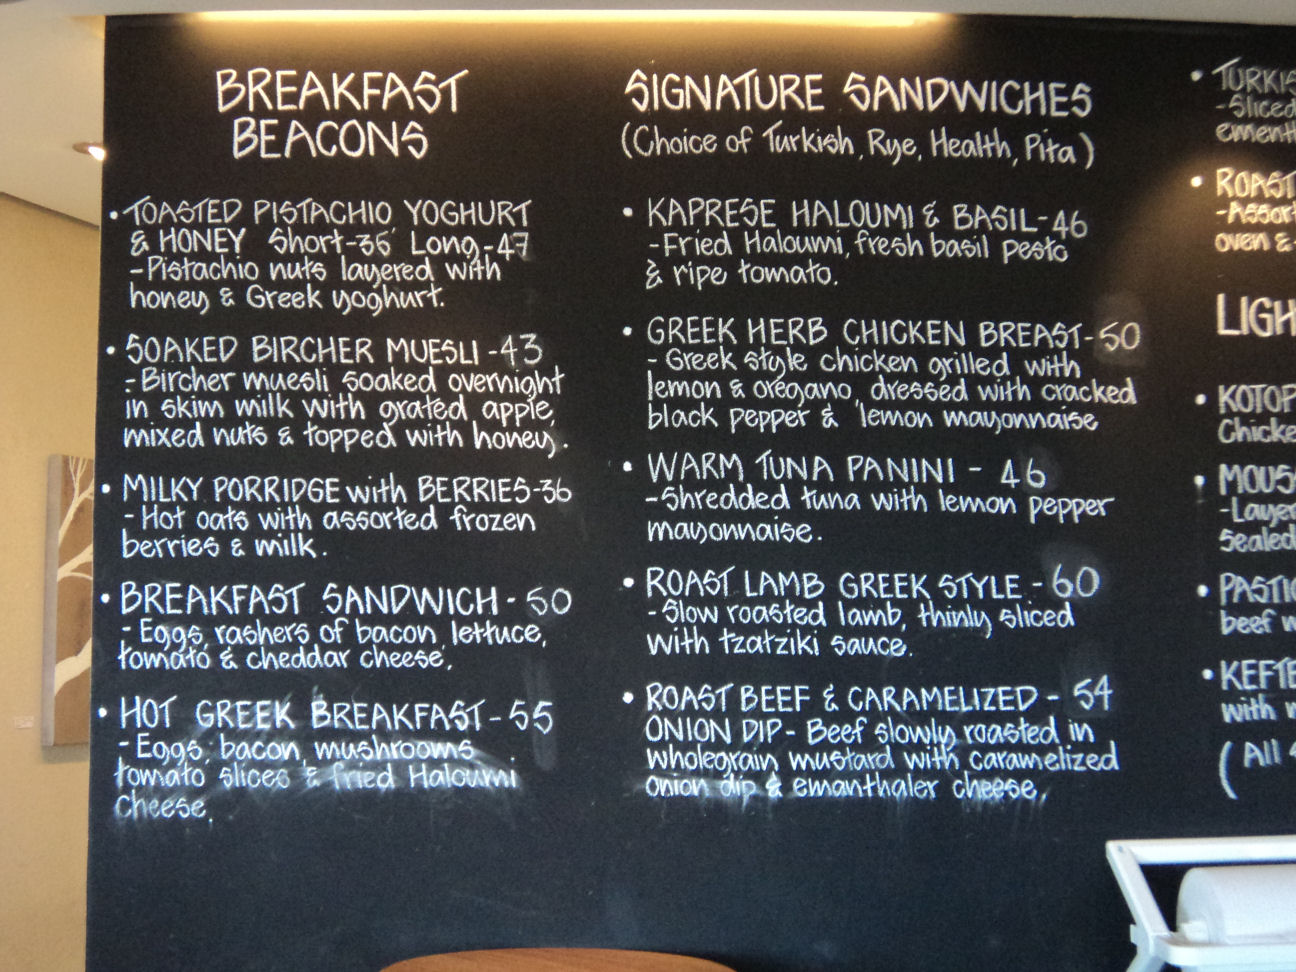 BREAKFAST
BEACONS
• TOASTED PISTACHIO YOGHURT
& HONEY Short-36 Long-47
-Pistachio nuts layered with
honey & Greek yoghurt.
• SOAKED BIRCHER MUESLI -43
-Bircher muesli soaked overnight
in skim milk with grated apple,
mixed nuts & topped with honey.
• MILKY PORRIDGE with BERRIES-36
-Hot oats with assorted frozen
berries & milk.
• BREAKFAST SANDWICH - 50
-Eggs, rashers of bacon, lettuce,
tomato & cheddar cheese.
• HOT GREEK BREAKFAST-55
-Eggs, bacon, mushrooms
tomato slices & fried Haloumi
Cheese.
SIGNATURE SANDWICHES
(Choice of Turkish, Rye, Health, Pita)
• KAPRESE HALOUMI & BASIL-46
-Fried Haloumi, fresh basil pesto
& ripe tomato.
• GREEK HERB CHICKEN BREAST-50
- Greek style chicken grilled with
lemon & oregano, dressed with cracked
black pepper & lemon mayonnaise
• WARM TUNA PANINI - 46
-Shredded tuna with lemon pepper
mayonnaise.
• ROAST LAMB GREEK STYLE - 60
-Slow roasted lamb, thinly sliced
with tzatziki sauce.
• ROAST BEEF & CARAMELIZED - 54
ONION DIP- Beef slowly roasted in
wholegrain mustard with caramelized
onion dip & emanthaler cheese.
• TURKIS
-Sliced
ementh
• ROAST
-Assor
oven &
LIGH
• KOTOP
Chicke
• MOUSS
-Layer
Sealed
• PASTIC
beef w
• KEFTE
with m
(All